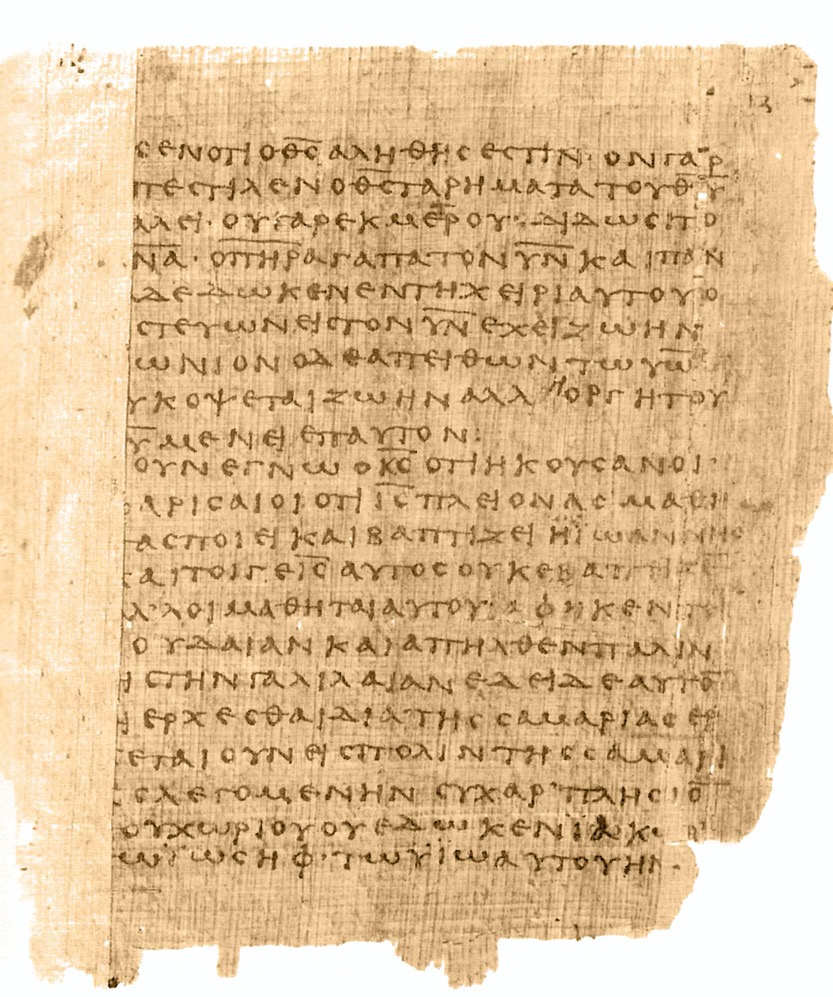 ϲενοτιοθ̅ϲ̅αληθηϲεϲτιν· ονγαρ
πεϲτιλενοθ̅ϲ̅ταρηματατουθ̅υ̅
λλει· ουγαρεκμερου· διδωϲιτο
π̅ν̅α̅· οπ̅η̅ρ̅αγαπατονυ̅ν̅καιπαν
δεδωκενεντηχειριαυτουο
ϲτευωνειϲτονυ̅ν̅εχειζωην
ωνιονοδεαπειθωντωυ̅ω̅
υκοψεταιζωηναλληοργητου
θ̅υ̅μενειεπαυτον:
ουνεγνωοκ̅ϲ̅οτιηκουϲανοι
αριϲαιοιοτιι̅ϲ̅πλειοναϲμαθη
ταϲποιεικαιβαπτιζειηϊωαννηϲ
καιτοιγει̅ϲ̅αυτοϲουκεβαπτιζε̅
αλλοιμαθηταιαυτου· αφηκεντη
ουδαιανκαιαπηλθενπαλιν
ειϲτηνγαλιλαιανεδειδεαυτο̅
διερχεϲθαιδιατηϲϲαμαριαϲερ
χεταιουνειϲπολιντηϲϲαμαρι
αϲλεγομενηνϲυχαρ᾽πληϲιο̅
τουχωριουουεδωκενϊακω
τωϊωϲηφ· τωυϊωαυτουην